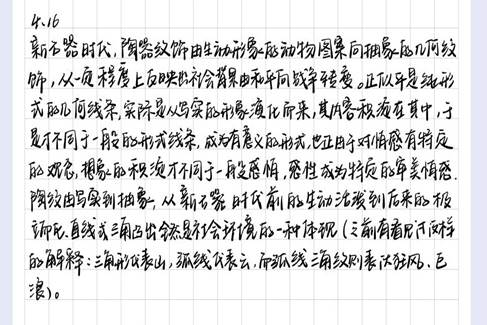 4.16
新石器时代，陶器纹饰由生动形象的动物图案向抽象的几何纹
饰，从一定程度上反映出社会背景由和平向战争转变。正似乎是纯形
式的几何线条，实际是从写实的形象演化而来，其内容积淀在其中，于
是才不同于一般的形式线条，成为有意义的形式，也正由于对情感有特定
的观念，想象的积淀才不同一般感情，感性成为特定的审美情感。
陶纹由写实到抽象，从新石器时代前的生动活泼到后来的
直线式三角凸出会然是社会环境的一种体现（之前有看见过这样
的解释：三角形代表山，弧线代表云，而弧线三角纹则表达狂风、巨
浪）。